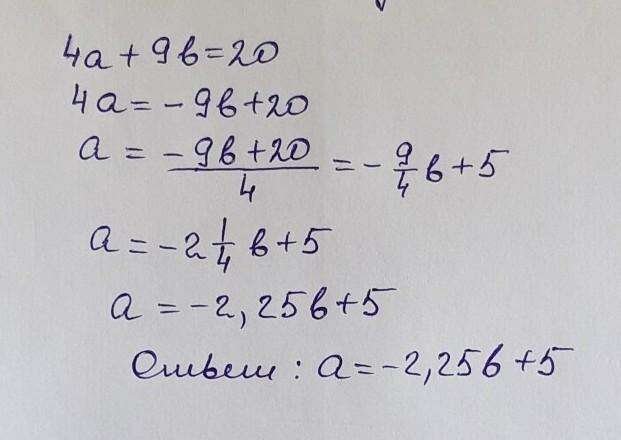 4a + 9b = 20
4a = - 9b + 20
a = (- 9b + 20)/4 = - 9/4 b + 5
a = - 2 1/4 b + 5
a = - 2,25b + 5
Ответ: a = - 2,25b + 5